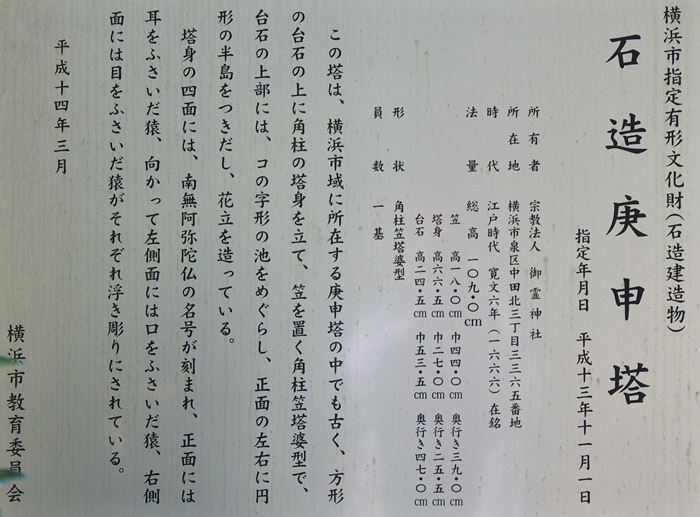 横浜市指定有形文化財（石造建造物）
石造庚申塔
指定年月日　平成十三年十一月一日
所有者　宗教法人　御霊神社
所在地　横浜市泉区中田北三丁目三三六五番地
時代　江戸時代　寛文六年（一六六六）在銘
法量　総高　一〇九・〇cm
笠　高一八・〇cm　巾四四・〇cm　奥行き三九・〇cm
塔身　高六六・五cm　巾二七・〇cm　奥行き二五・五cm
台石　高二四・五cm　巾五三・五cm　奥行き四七・〇cm
形状　角柱笠塔婆型
員数　一基
この塔は、横浜市域に所在する庚申塔の中でも古く、方形
の台石の上に角柱の塔身を立て、笠を置く角柱笠塔婆型で、
台石の上部には、コの字形の池をめぐらし、正面の左右に円
形の半島をつきだし、花立を造っている。
塔身の四面には、南無阿弥陀仏の名号が刻まれ、正面には
耳をふさいだ猿、向かって左側面には口をふさいだ猿、右側
面には目をふさいだ猿がそれぞれ浮き彫りにされている。
平成十四年三月
横浜市教育委員会